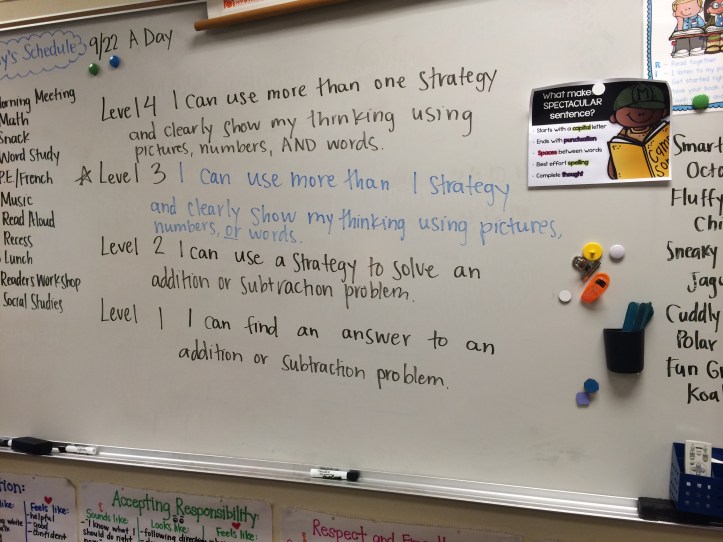 y's Schedule
9/22 A Day
Morning Meeting
Math
Snack
Word Study
P.E/French
Music
Read Aloud
Recess
Lunch
Readers Workshop
Social Studies
Level 4 I can use more than one strategy
and clearly show my thinking using
pictures, numbers, AND words.
Level 3 I can use more than 1 strategy
and clearly show my thinking using pictures,
numbers, or words.
Level 2 I can use a strategy to solve an
addition or subtraction problem.
Level 1 I can find an answer to an
addition or subtraction problem.
What make
SPECTACULAR
sentence?
Starts with a capital letter
Ends with punctuation
Spaces between words
Best effort spelling
Complete thought
R - Read together
Smart
Octo
Fluffy
Chi
Sneaky
Jagu
Cuddly
Polar
Fun G
Koa
Feels like:
-helpful
-good
-confident
Accepting Responsibility
Sounds like:
-I know what I
should do right
Looks like:
-following direc
Feels like:
Respect and